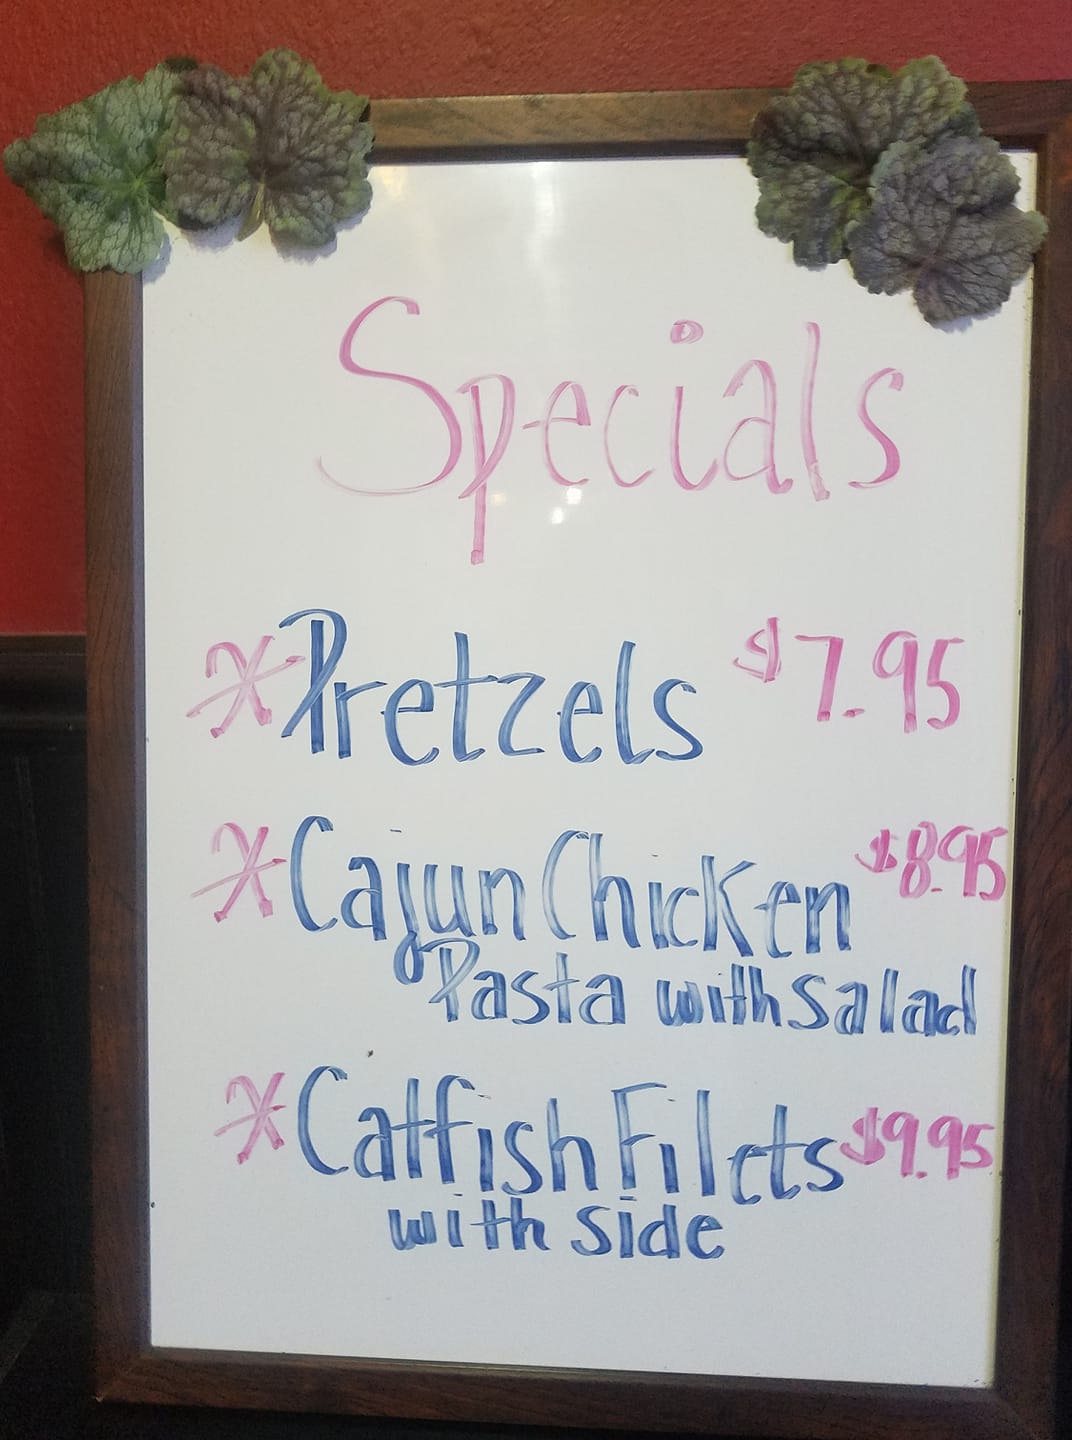 Specials
*Pretzels $7.95
*Cajun Chicken $8.95
Pasta with Salad
*Catfish Filets $9.95
with side